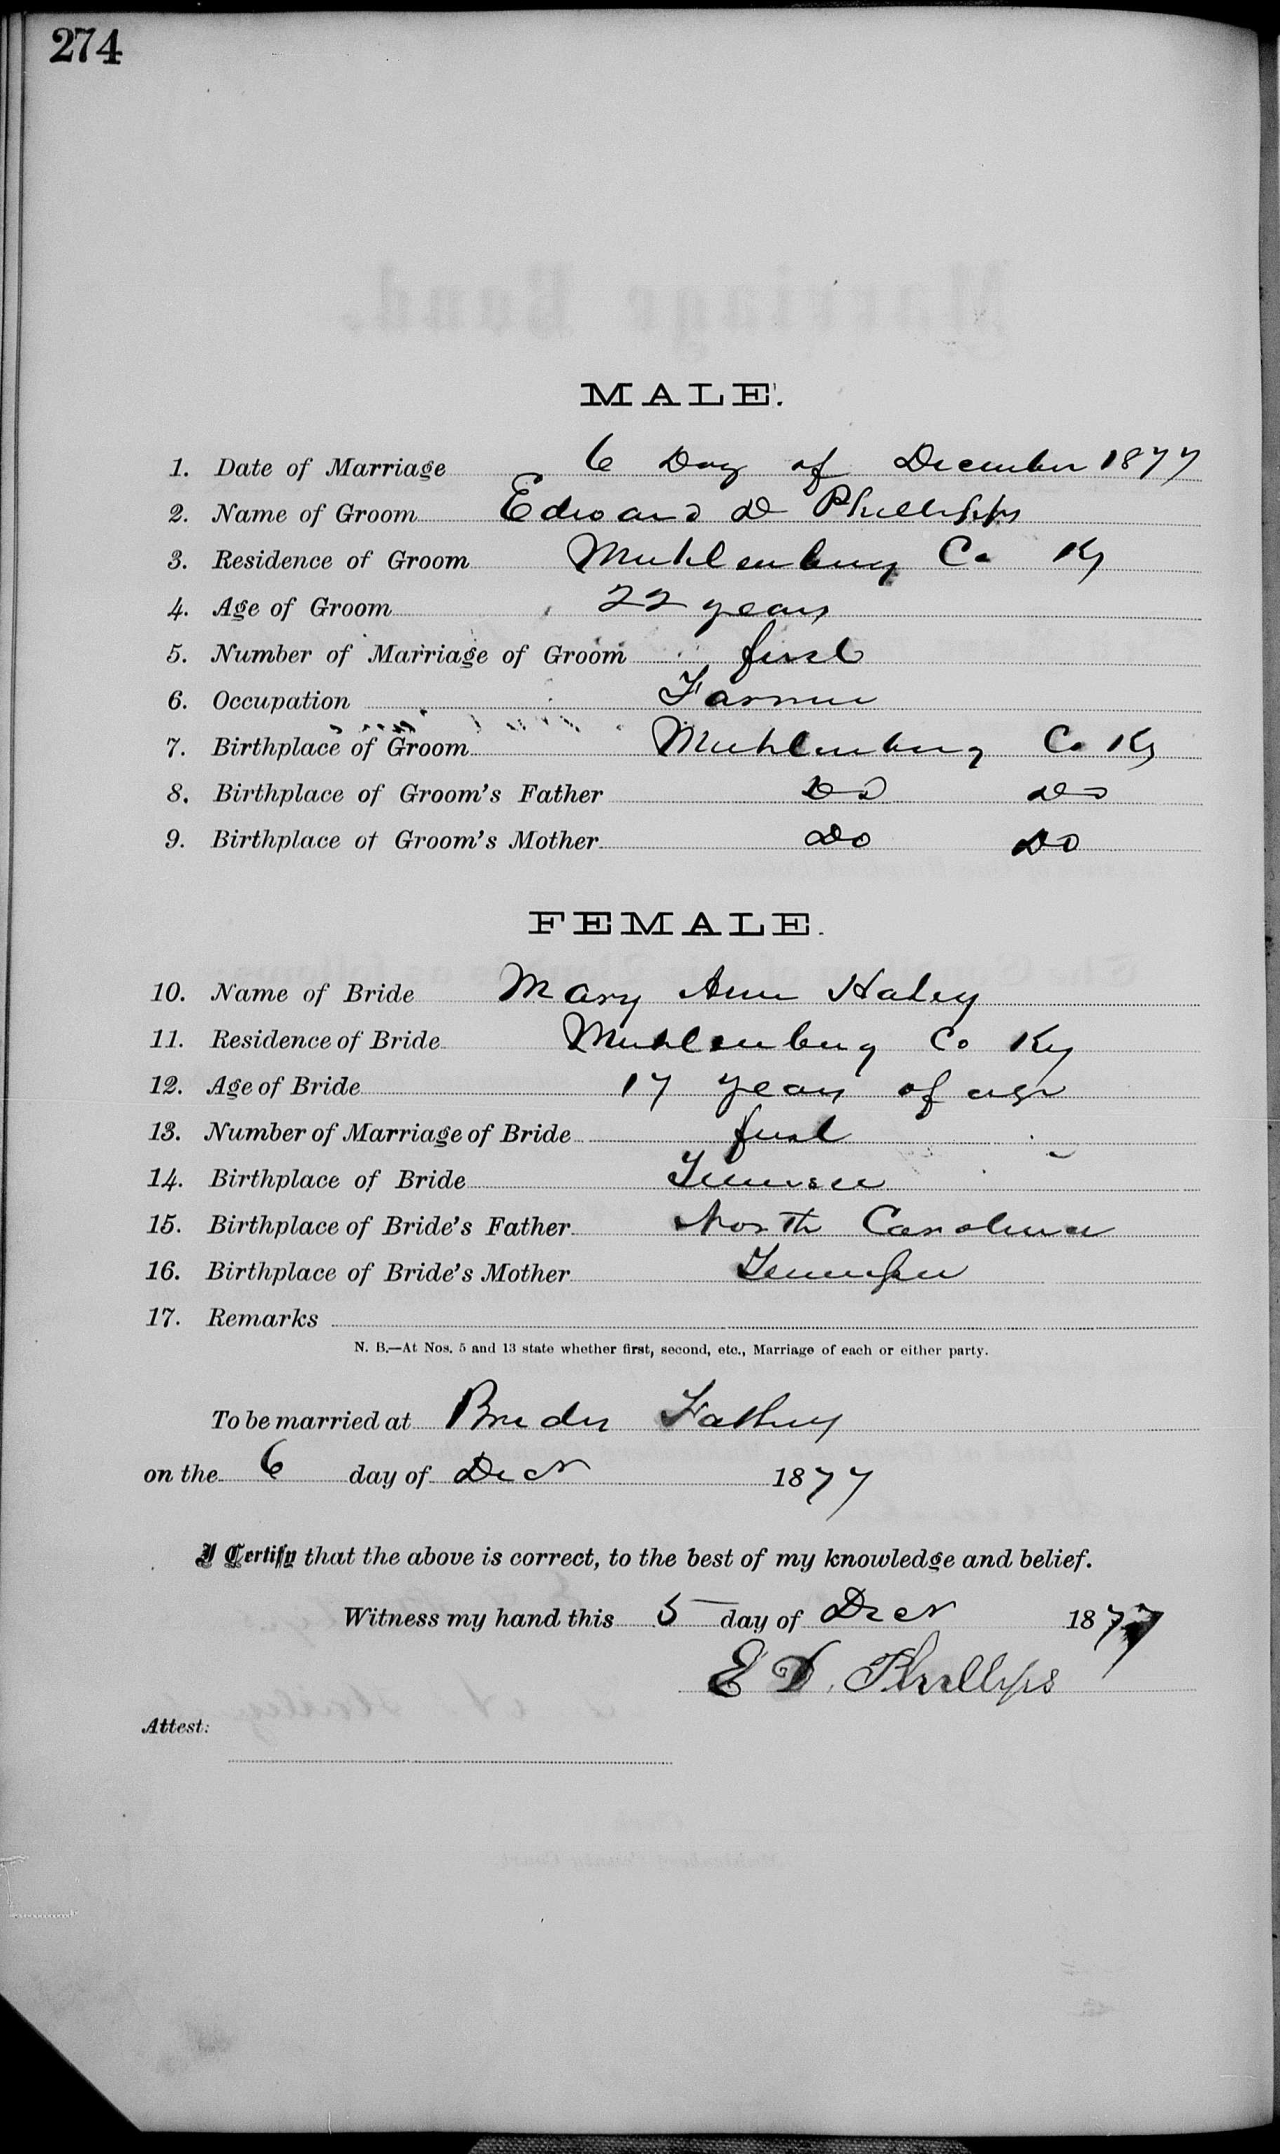 274
MALE.
1. Date of Marriage 6 Day of December 1877
2. Name of Groom Edward D Phillipps
3. Residence of Groom Muhlenburg Co Ky
4. Age of Groom 22 years
5. Number of Marriage of Groom first
6. Occupation Farmer
7. Birthplace of Groom Muhlenburg Co Ky
8. Birthplace of Groom's Father Do Do
9. Birthplace of Groom's Mother Do Do
FEMALE.
10. Name of Bride Mary Ann Haley
11. Residence of Bride Muhlenburg Co Ky
12. Age of Bride 17 years of age
13. Number of Marriage of Bride first
14. Birthplace of Bride Tennessee
15. Birthplace of Bride's Father North Carolina
16. Birthplace of Bride's Mother Tennessee
17. Remarks
N. B.—At Nos. 5 and 13 state whether first, second, etc., Marriage of each or either party.
To be married at Brides Fathers
on the 6 day of Decr 1877
I Certify that the above is correct, to the best of my knowledge and belief.
Witness my hand this 5 day of Decr 1877
E D. Phillips
Attest: